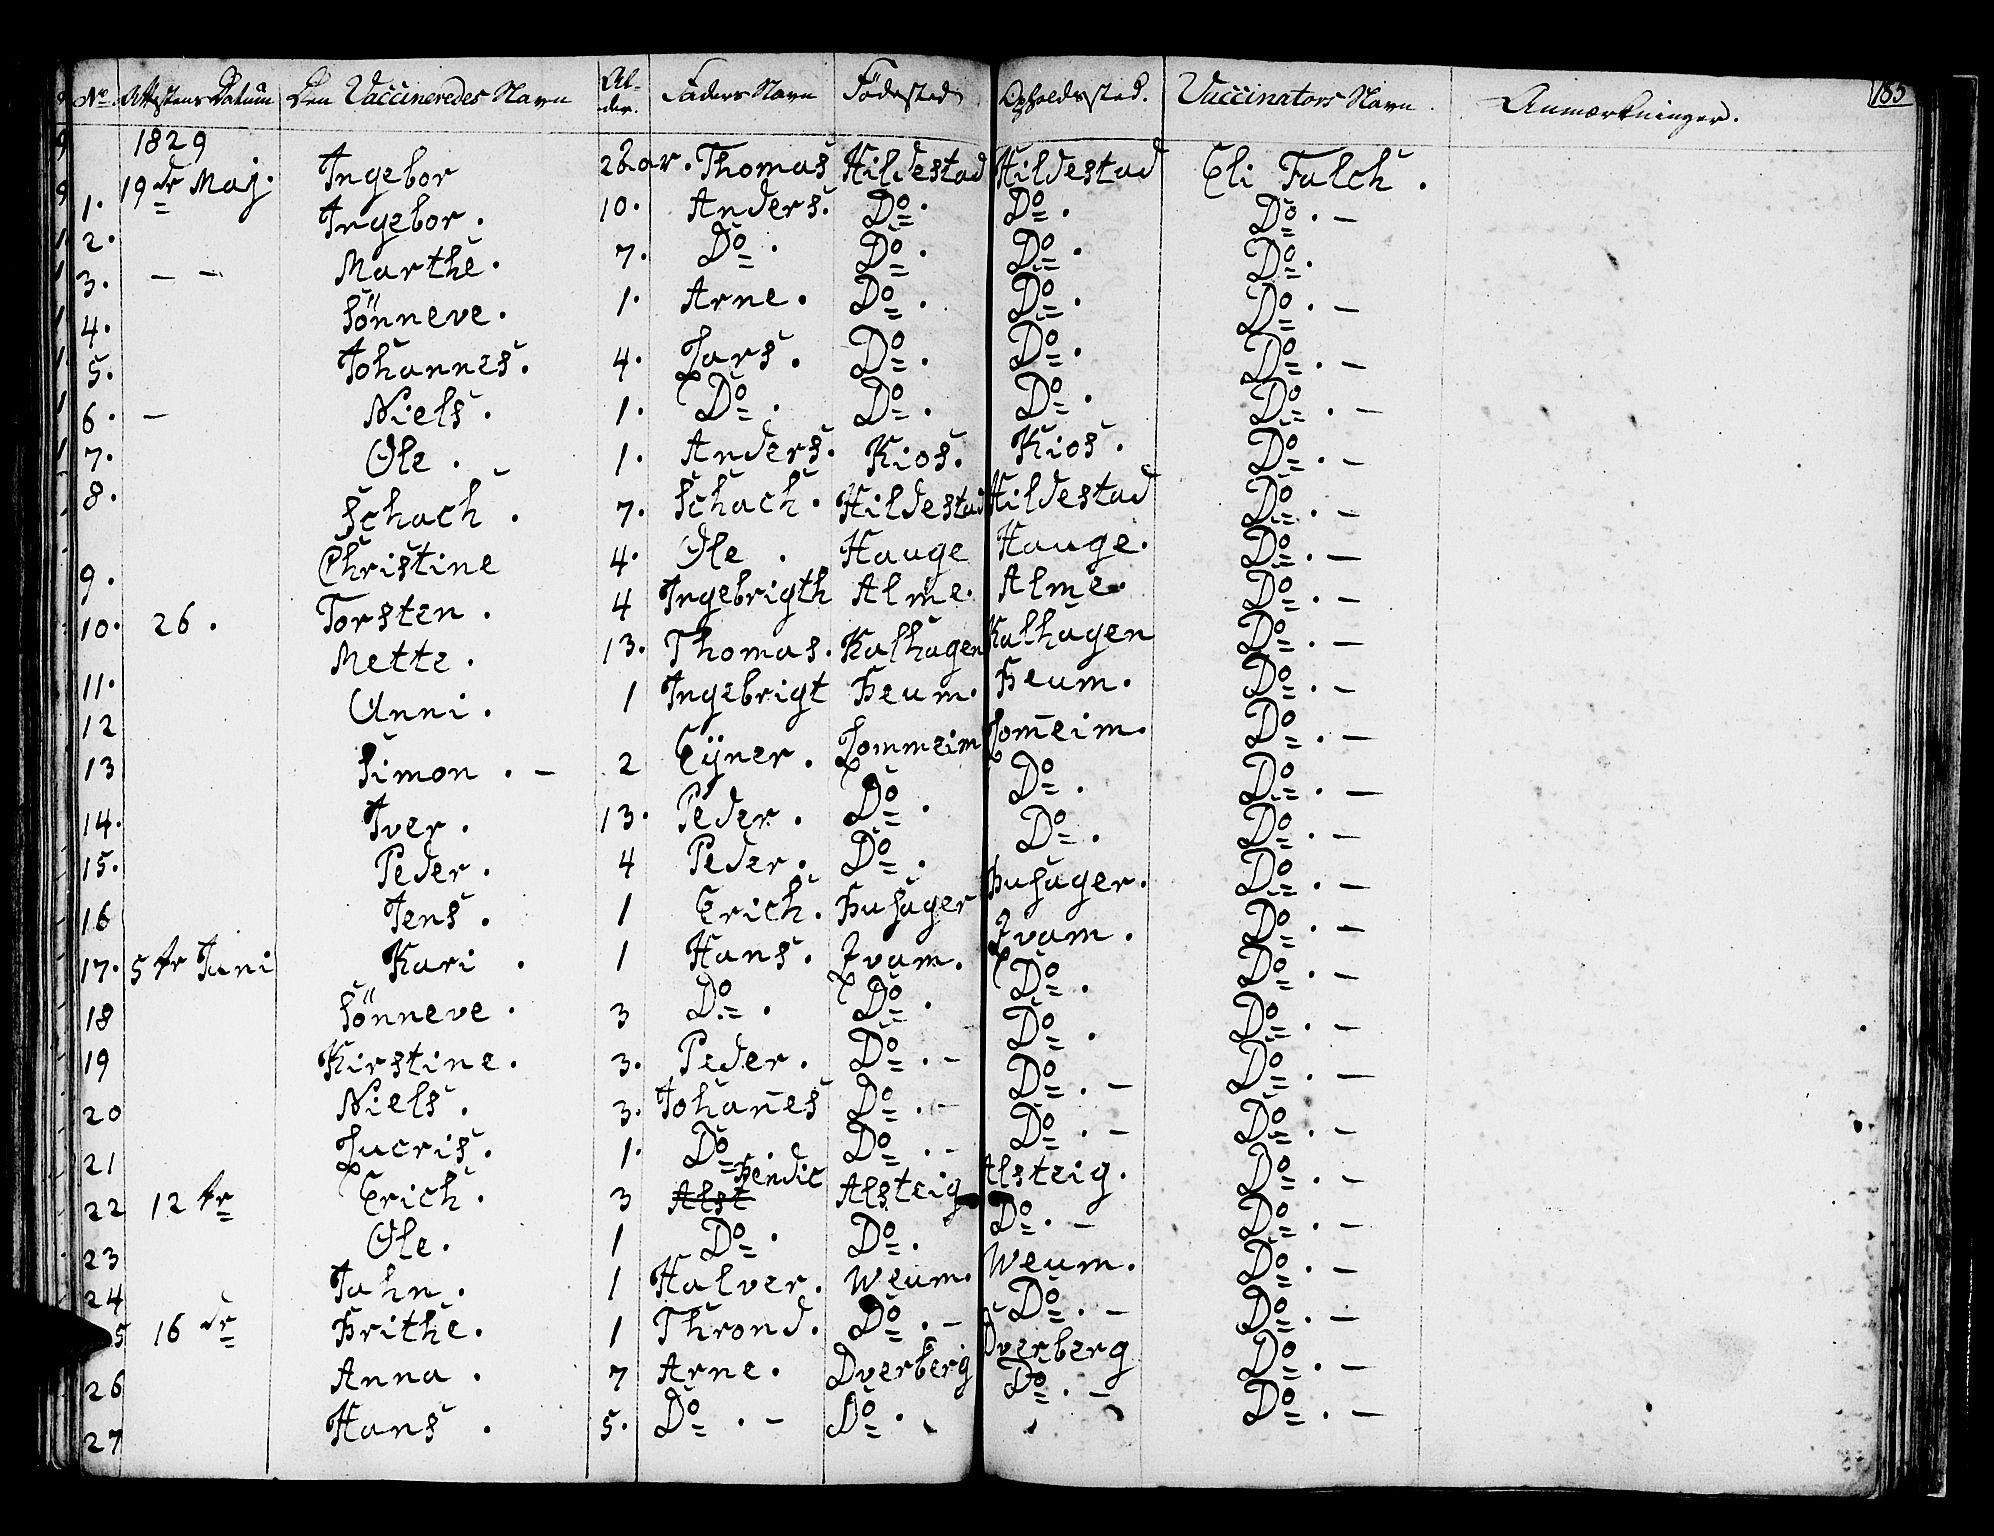 185
No. Attestens Datum Den Vaccineredes Navn Al-der. Faders Navn Födested Opholdssted. Vaccinators Navn. Anmærkninger.
1829
1. 19de Maj. Ingebor 2 aar. Thomas Hildestad Hildestad Eli Falch.
2. Ingebor. 10. Anders. Do. Do. Do. –
3. – – Marthe. 7. Do. Do. Do. Do.
4. Sönneve. 1. Arne. Do. Do. Do. –
5. Johannes. 4. Lars. Do. Do. Do. –
6. – Niels. 1. Do. Do. Do. Do. –
7. Ole. 1. Anders. Kios. Kios. Do. –
8. Schach. 7. Schach. Hildestad Hildestad Do. –
9. Christine 4. Ole. Hauge Hauge. Do. –
10. 26. Torsten. 4 Ingebrigth Alme. Alme. Do. –
11. Mette. 13. Thomas. Kalhagen Kalhagen Do. –
12 Anni. 1 Ingebrigt Heum. Heum. Do. –
13 Simon. – 2 Eÿner. Lommeim Lom̅eim. Do. –
14. Iver. 13. Peder. Do. Do. Do. –
15. Peder. 4 Peder. Do. Do. Do. –
16 Jens. 1 Erich. Husager Husager. Do. –
17. 5te Juni Kari. 1 Hans. Qvam. Qvam. Do. –
18 Sönneve. 3 Do. Do. Do. Do. –
19 Kirstine. 3. Peder. Do. – Do. Do. –
20 Niels. 3. Johan̅es Do. – Do. – Do. –
21 Lucris. 1. Do. Do. – Do. – Do. –
22 12te Erich. 3 Alst Hendic Alsteig Alsteig. Do. –
23 Ole. 1 Do. Do. Do. – Do. –
24 Jahn. 1 Halver. Weum. Weum. Do. –
5 16de Brithe. 1 Thrond. Do. – Do. – Do. –
26 Anna. 7 Arne. Dverberg Dverberg Do. –
27 Hans. 5. Do. – Do. Do. – Do. –